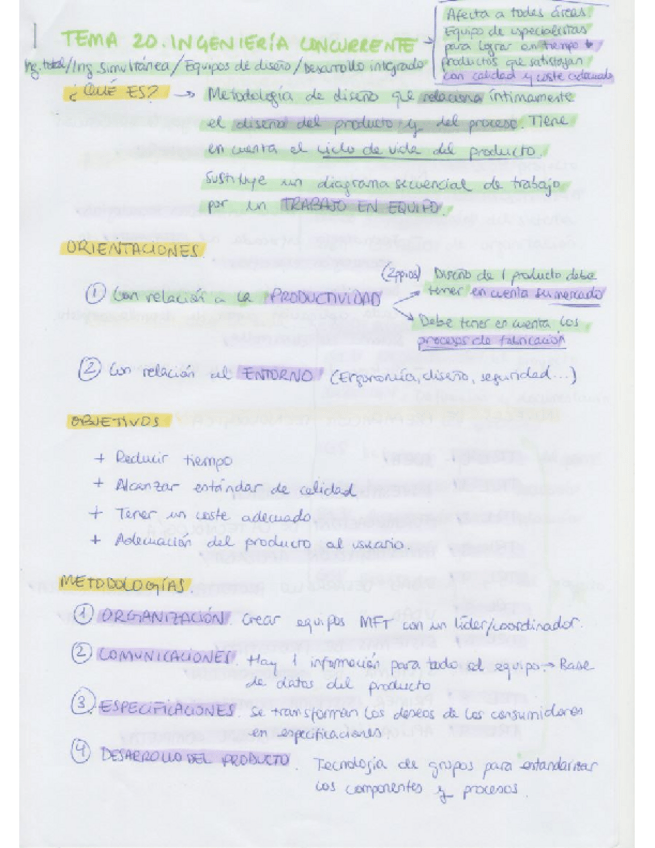 TEMA 20. INGENIERÍA CONCURRENTE →
Afecta a todas áreas
Equipo de especialistas
para lograr en tiempo +
productos que satisfagan
con calidad y coste adecuado
Ing. total/Ing simultánea/Equipos de diseño/Desarrollo integrado
¿QUÉ ES? → Metodología de diseño que relaciona íntimamente
el diseño del producto y del proceso. Tiene
en cuenta el ciclo de vida del producto.
Sustituye un diagrama secuencial de trabajo
por un TRABAJO EN EQUIPO.
ORIENTACIONES
① Con relación a la PRODUCTIVIDAD
(2ppios) Diseño de 1 producto debe
tener en cuenta su mercado
Debe tener en cuenta los
procesos de fabricación
② Con relación al ENTORNO (Ergonomía, diseño, seguridad...)
OBJETIVOS
+ Reducir tiempo
+ Alcanzar estándar de calidad
+ Tener un coste adecuado
+ Adecuación del producto al usuario.
METODOLOGÍAS
① ORGANIZACIÓN. Crear equipos MFT con un líder/coordinador.
② COMUNICACIONES. Hay 1 información para todo el equipo → Base
de datos del producto
③ ESPECIFICACIONES. Se transforman los deseos de los consumidores
en especificaciones.
④ DESARROLLO DEL PRODUCTO. Tecnología de grupos para estandarizar
los componentes y procesos.